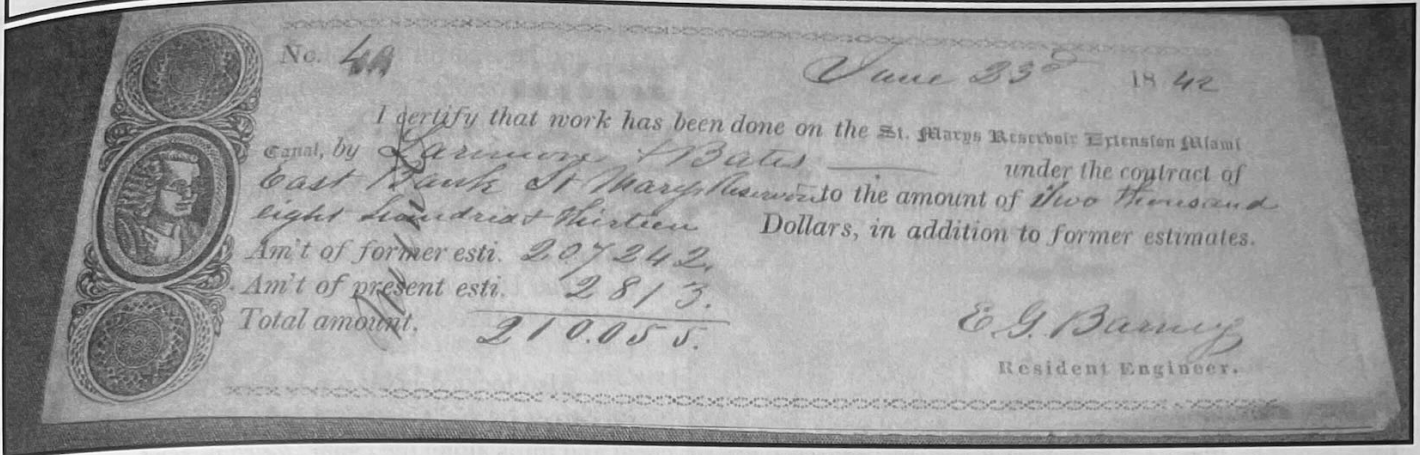 No. 49 June 23d 1842
I certify that work has been done on the St. Marys Reservoir Extension Miami
Canal, by Larimore & Bates under the contract of
East Bank St Marys Reservoir to the amount of Two thousand
eight hundred & thirteen Dollars, in addition to former estimates.
Am't of former esti. 207242.
Am't of present esti. 2813.
Total amount. 210.055.
E G. Barney
Resident Engineer.